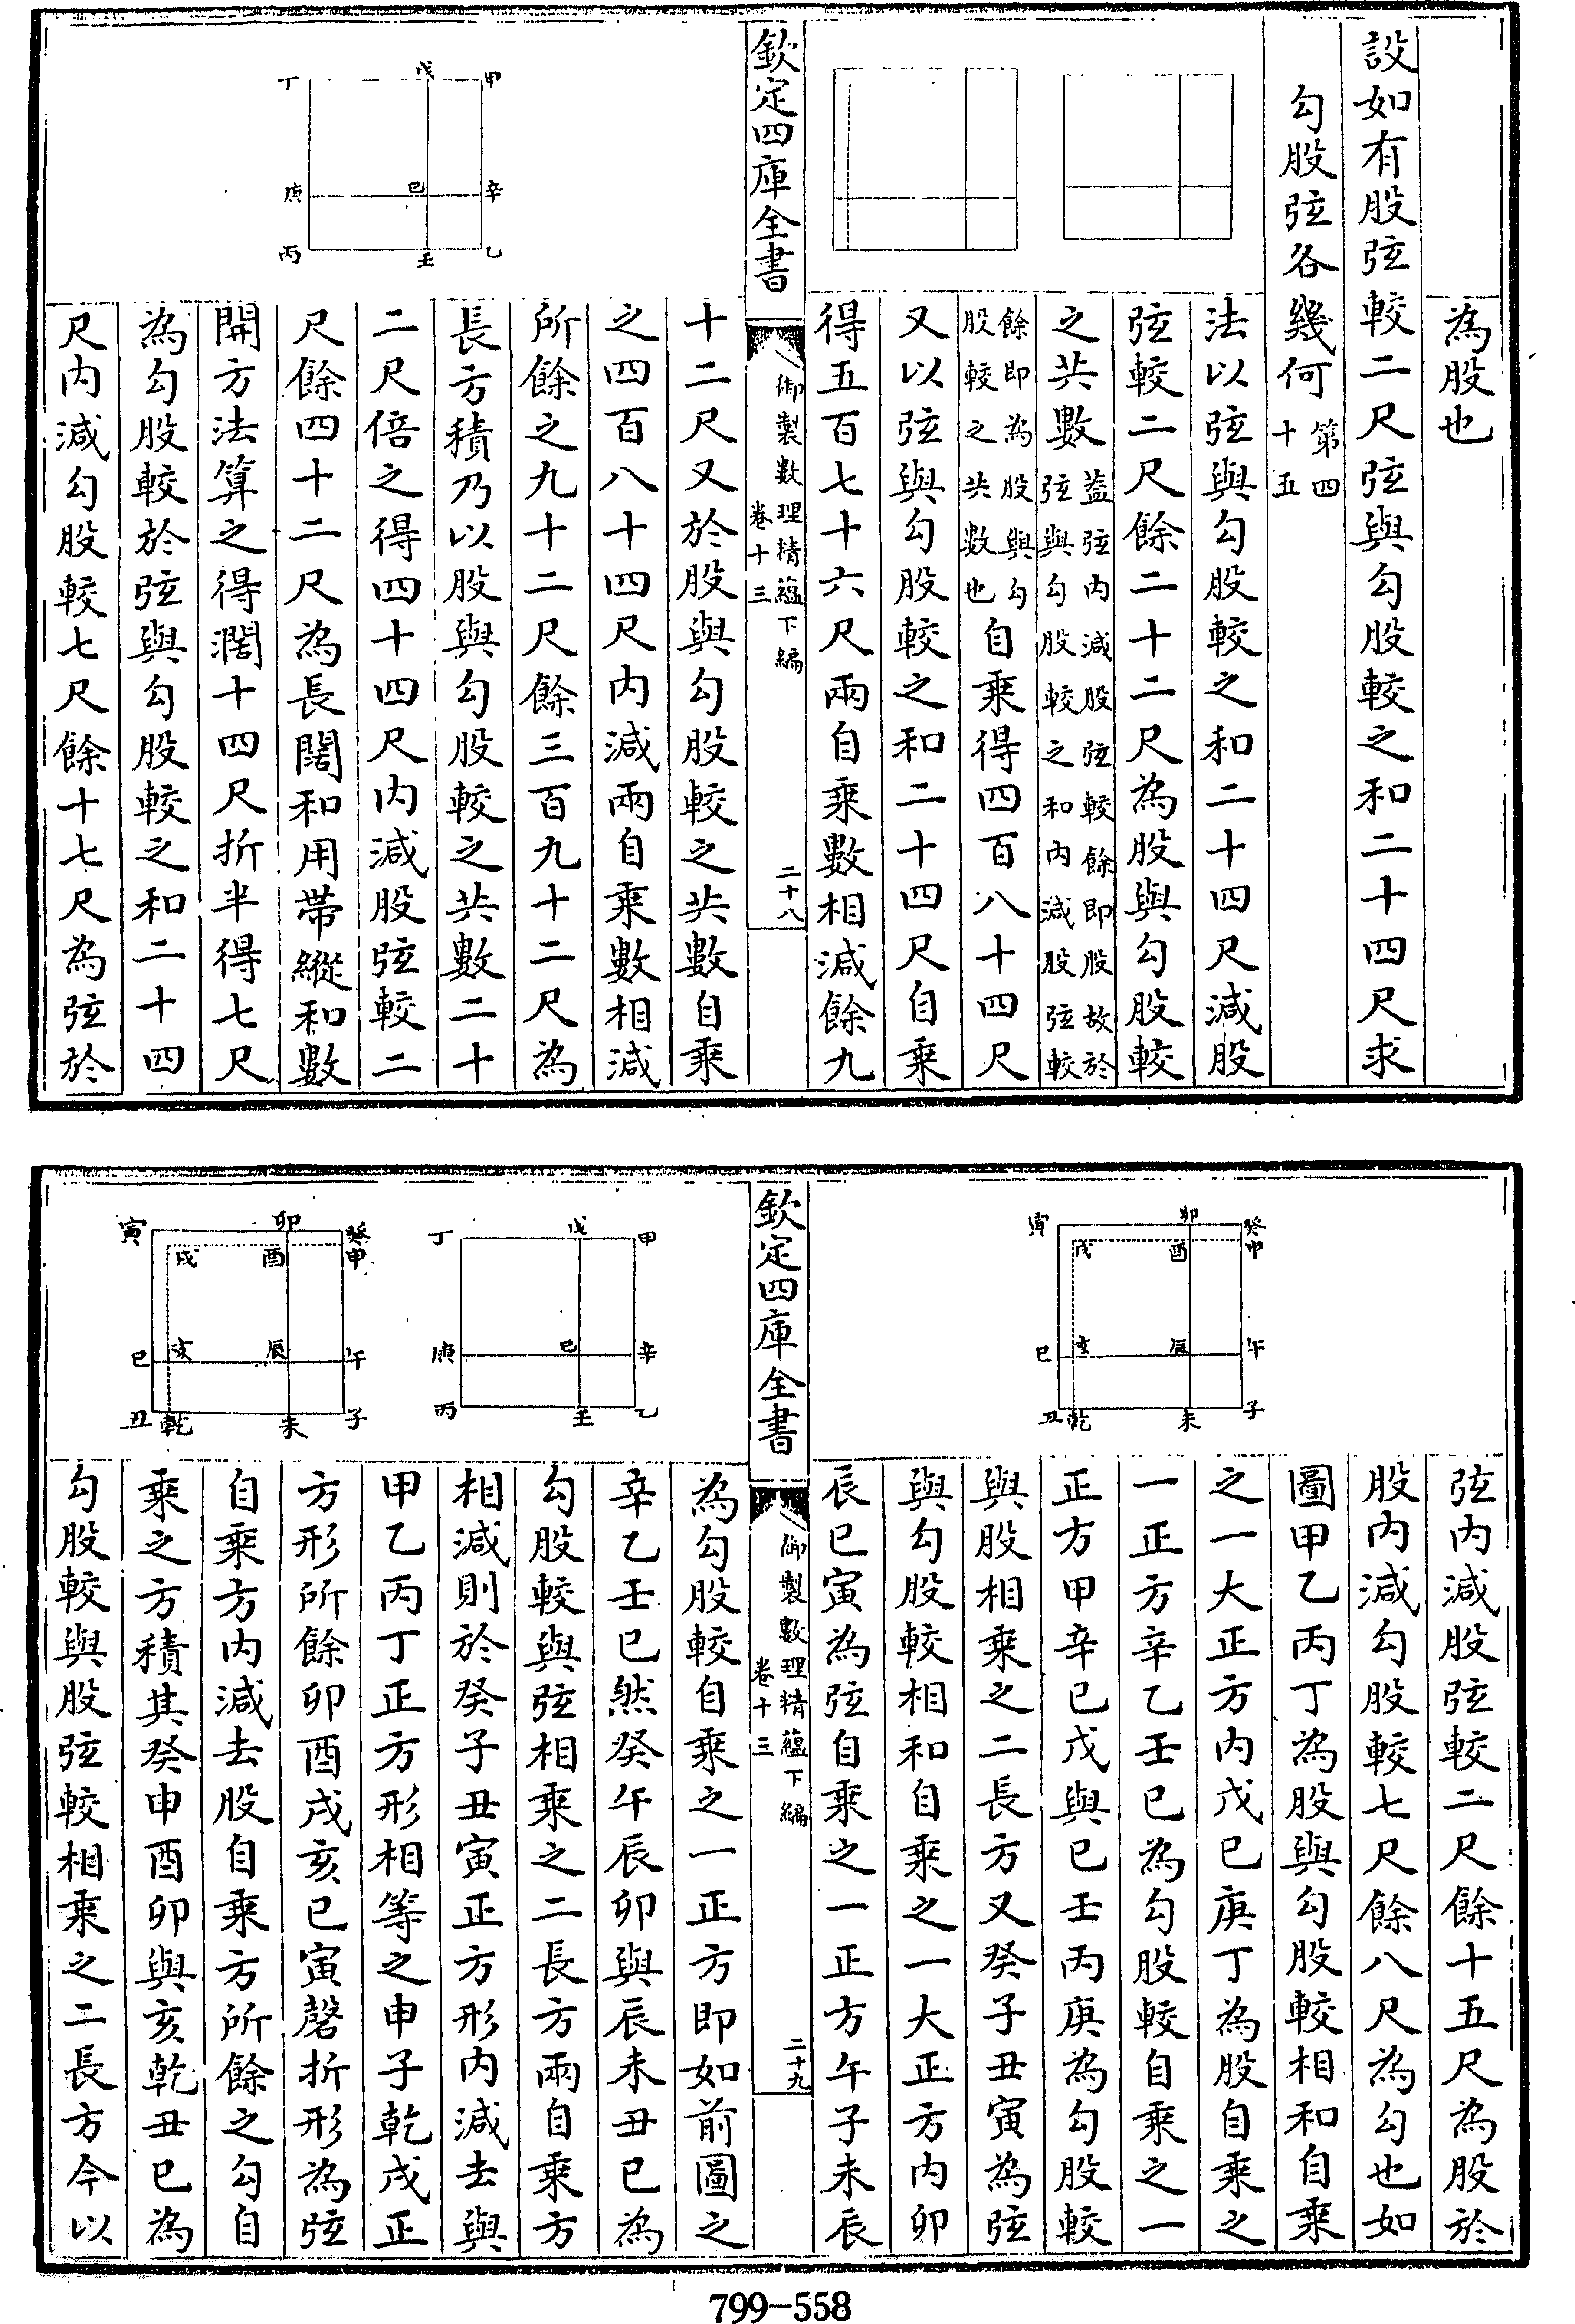 為股也
設如有股弦較二尺弦與勾股較之和二十四尺求
勾股弦各幾何第四十五
法以弦與勾股較之和二十四尺減股
弦較二尺餘二十二尺為股與勾股較
之共數葢弦內減股弦較餘即股故於弦與勾股較之和內減股弦較
餘即為股與勾股較之共數也自乘得四百八十四尺
又以弦與勾股較之和二十四尺自乘
得五百七十六尺兩自乘數相減餘九
欽定四庫全書
御製數理精蘊下編
卷十三
二十八
十二尺又於股與勾股較之共數自乘
之四百八十四尺內減兩自乘數相減
所餘之九十二尺餘三百九十二尺為
長方積乃以股與勾股較之共數二十
二尺倍之得四十四尺內減股弦較二
尺餘四十二尺為長闊和用帶縱和數
開方法算之得濶十四尺折半得七尺
為勾股較於弦與勾股較之和二十四
尺內減勾股較七尺餘十七尺為弦於
甲
戊
丁
辛
己
庚
乙
壬
丙
弦內減股弦較二尺餘十五尺為股於
股內減勾股較七尺餘八尺為勾也如
圖甲乙丙丁為股與勾股較相和自乘
之一大正方內戊己庚丁為股自乘之
一正方辛乙壬己為勾股較自乘之一
正方甲辛己戊與己壬丙庚為勾股較
與股相乘之二長方又癸子丑寅為弦
與勾股較相和自乘之一大正方內卯
辰巳寅為弦自乘之一正方午子未辰
癸
申
卯
寅
酉
戌
午
辰
亥
巳
子
未
乾
丑
欽定四庫全書
御製數理精蘊下編
卷十三
二十九
為勾股較自乘之一正方即如前圖之
辛乙壬己然癸午辰卯與辰未丑巳為
勾股較與弦相乘之二長方兩自乘方
相減則於癸子丑寅正方形內減去與
甲乙丙丁正方形相等之申子乾戌正
方形所餘卯酉戌亥巳寅磬折形為弦
自乘方內減去股自乘方所餘之勾自
乘之方積其癸申酉卯與亥乾丑巳為
勾股較與股弦較相乘之二長方今以
甲
戊
丁
辛
己
庚
乙
壬
丙
癸
申
卯
寅
酉
戌
午
辰
亥
巳
子
未
乾
丑
799-558